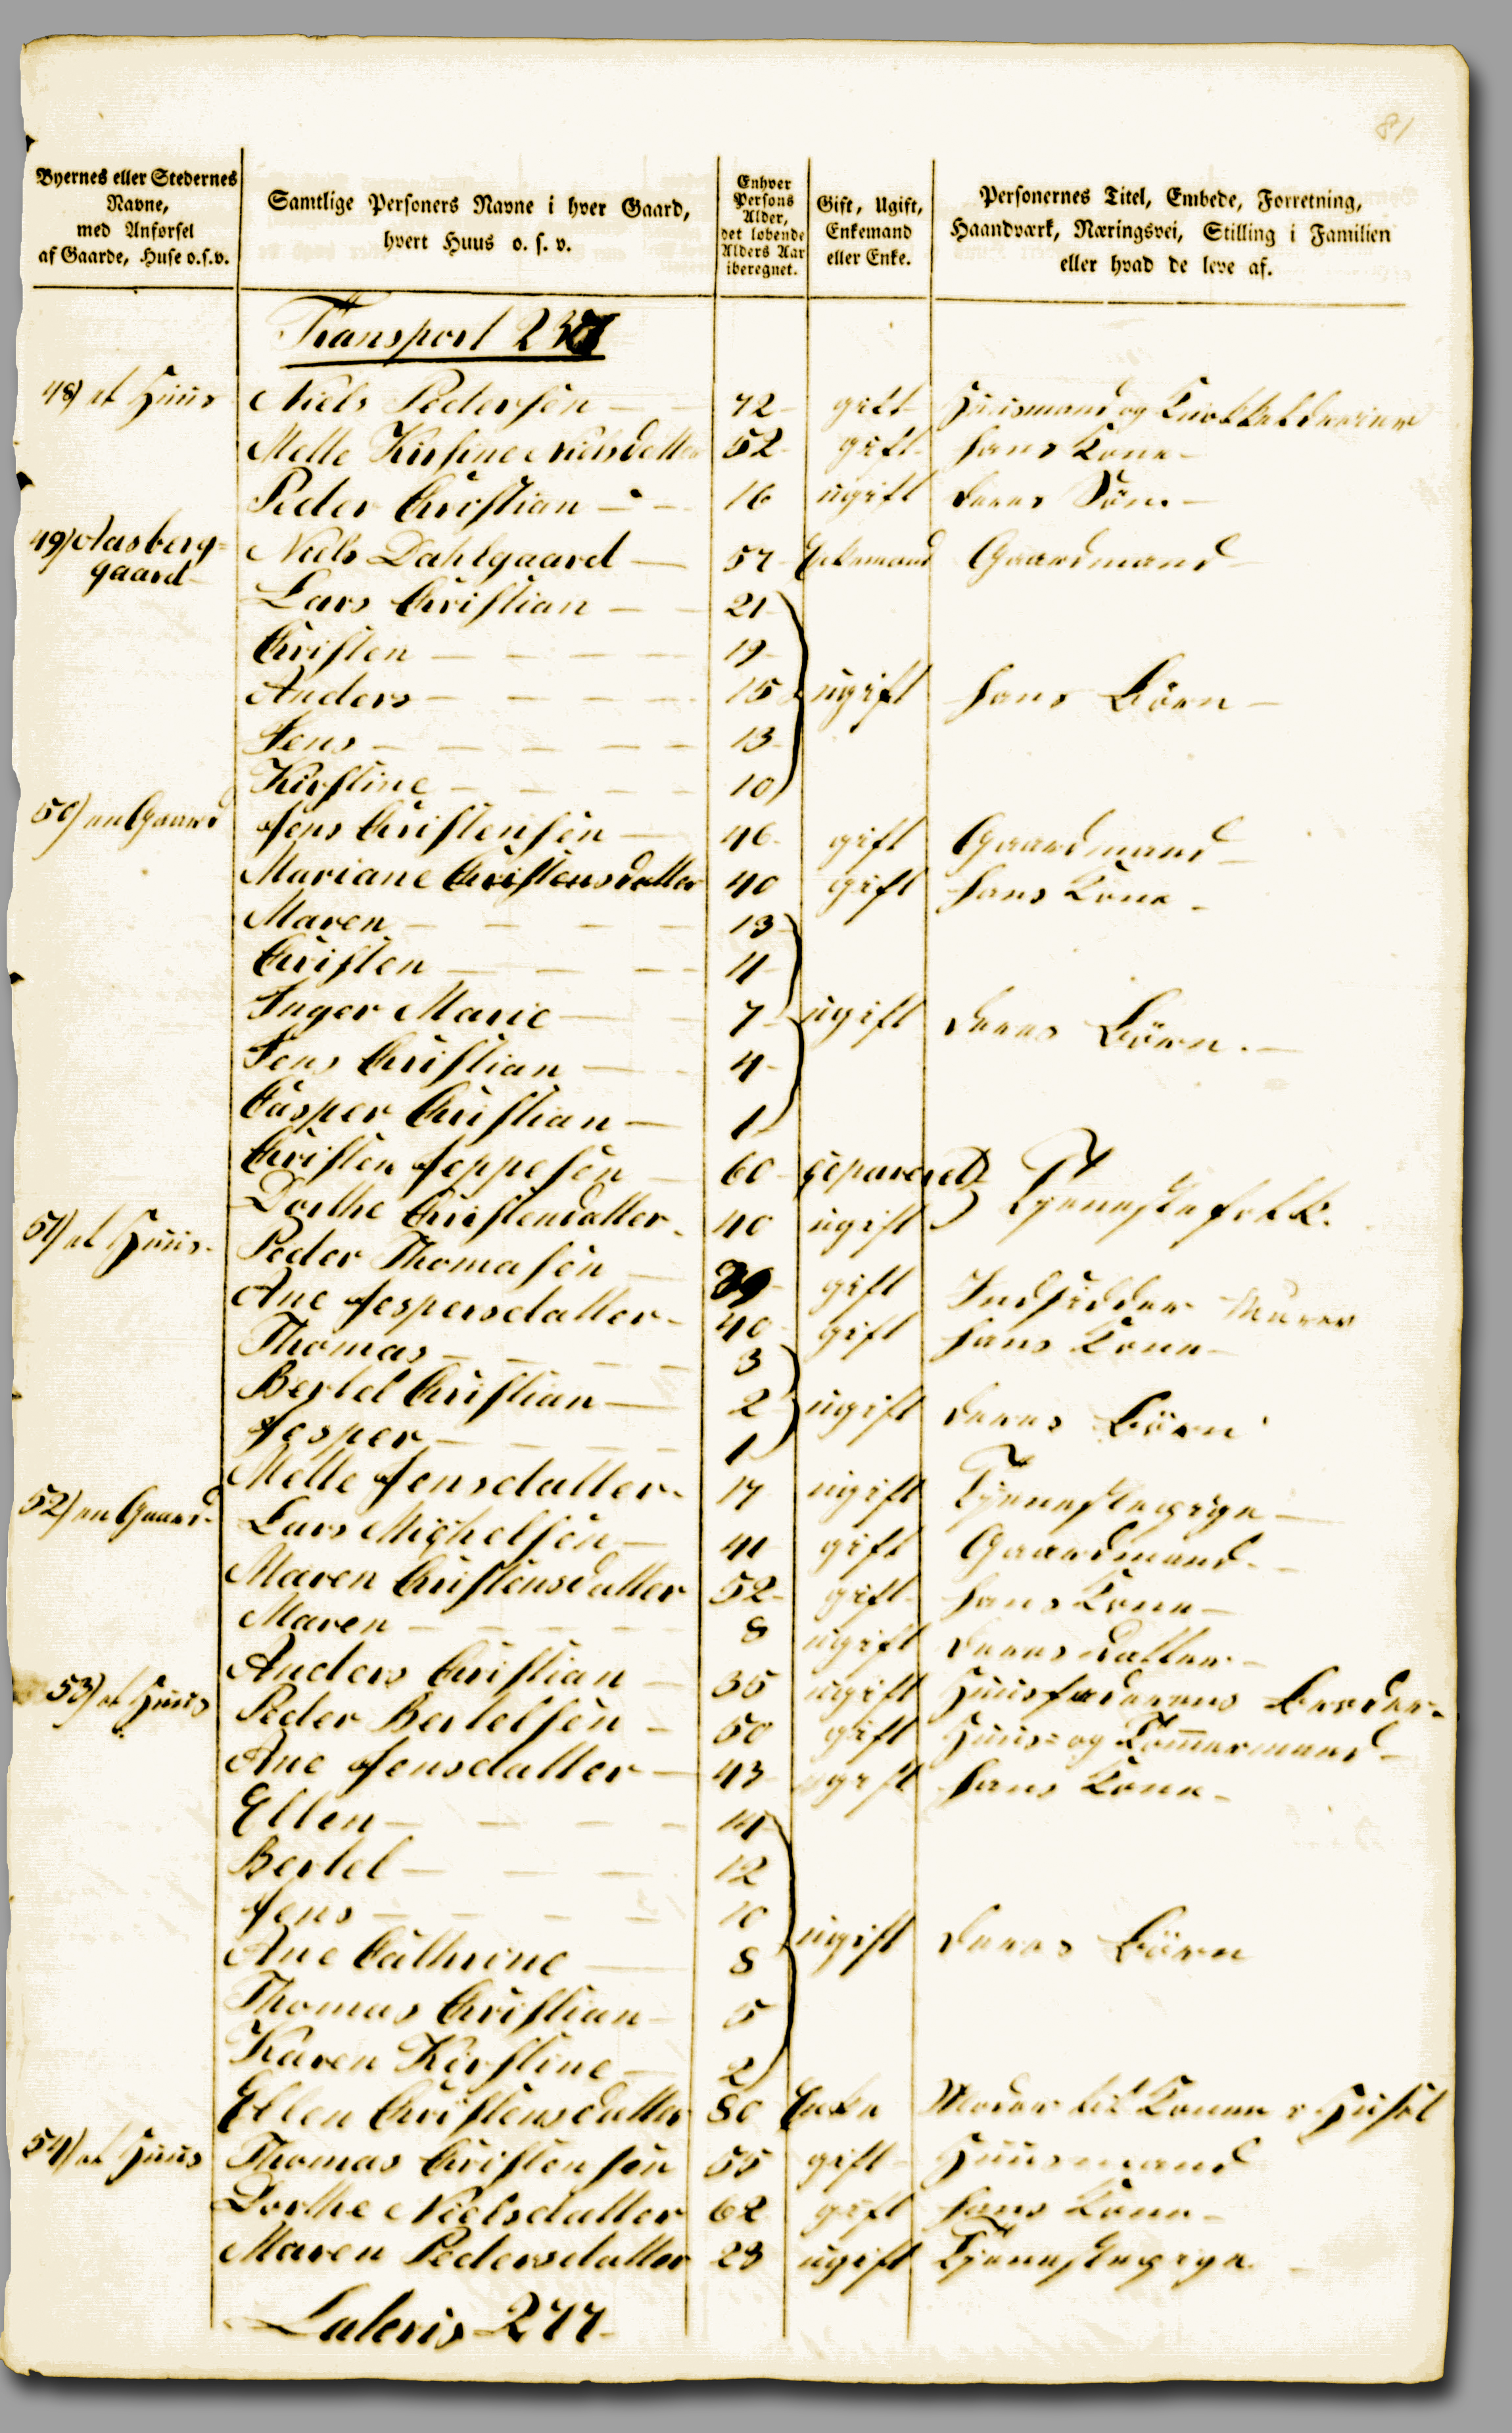 81
Byernes eller Stedernes Navne, med Anførsel af Gaarde, Huse o.s.v. Samtlige Personers Navne i hver Gaard, hvert Huus o. s. v. Enhver Persons Alder, det løbende Alders Aar iberegnet. Gift, Ugift, Enkemand eller Enke. Personernes Titel, Embede, Forretning, Haandværk, Næringsvei, Stilling i Familien eller hvad de leve af.
Transport
48) et Huus Niels Pedersen 72 gift Huusmand og
Mette Kirstine Nielsdatter 52 gift hans Kone
Peder Christian 16 ugift deres Søn
49) Aasberg= gaard Niels Dahlgaard 57 Enkemand Gaardmand
Lars Christian 21
Christen 19
Anders 15 ugift hans Börn
Jens 13
Kirstine 10
50) en Gaard Jens Christensen 46 gift Gaardmand
Mariane Christensdatter 40 gift hans Kone
Maren 13
Christen 11
Inger Marie 7 ugift deres Börn
Jens Christian 4
Casper Christian 1
Christen Jeppesen 60 separeret
Dorthe Christensdatter 40 ugift Tjenestefolk.
51) et Huus Peder Thomasen 39 gift Indsidder Murer
Ane Jespersdatter 40 gift hans Kone
Thomas 3
Bertel Christian 2 ugift deres Börn
Jesper 1
Mette Jensdatter 17 ugift Tjenestepige
52) en Gaard Lars Mighelsen 41 gift Gaardmand
Maren Christensdatter 52 gift hans Kone
Maren 8 ugift deres datter
Anders Christian 35 ugift Huusfaderens Broder
53) et Huus Peder Bertelsen 50 gift Huus= og Tömermand
Ane Jensdatter 43 gift hans Kone
Ellen 14
Bertel 12
Jens 10
Ane Cathrine 8 ugift deres Börn
Thomas Christian 5
Karen Kirstine 2
Ellen Christensdatter 80 Enke Moder til Konen i Huset
54) et Huus Thomas Christensen 55 gift Huusmand
Dorthe Nielsdatter 62 gift hans Kone
Maren Pedersdatter 23 ugift Tjenestepige
Lateris 277